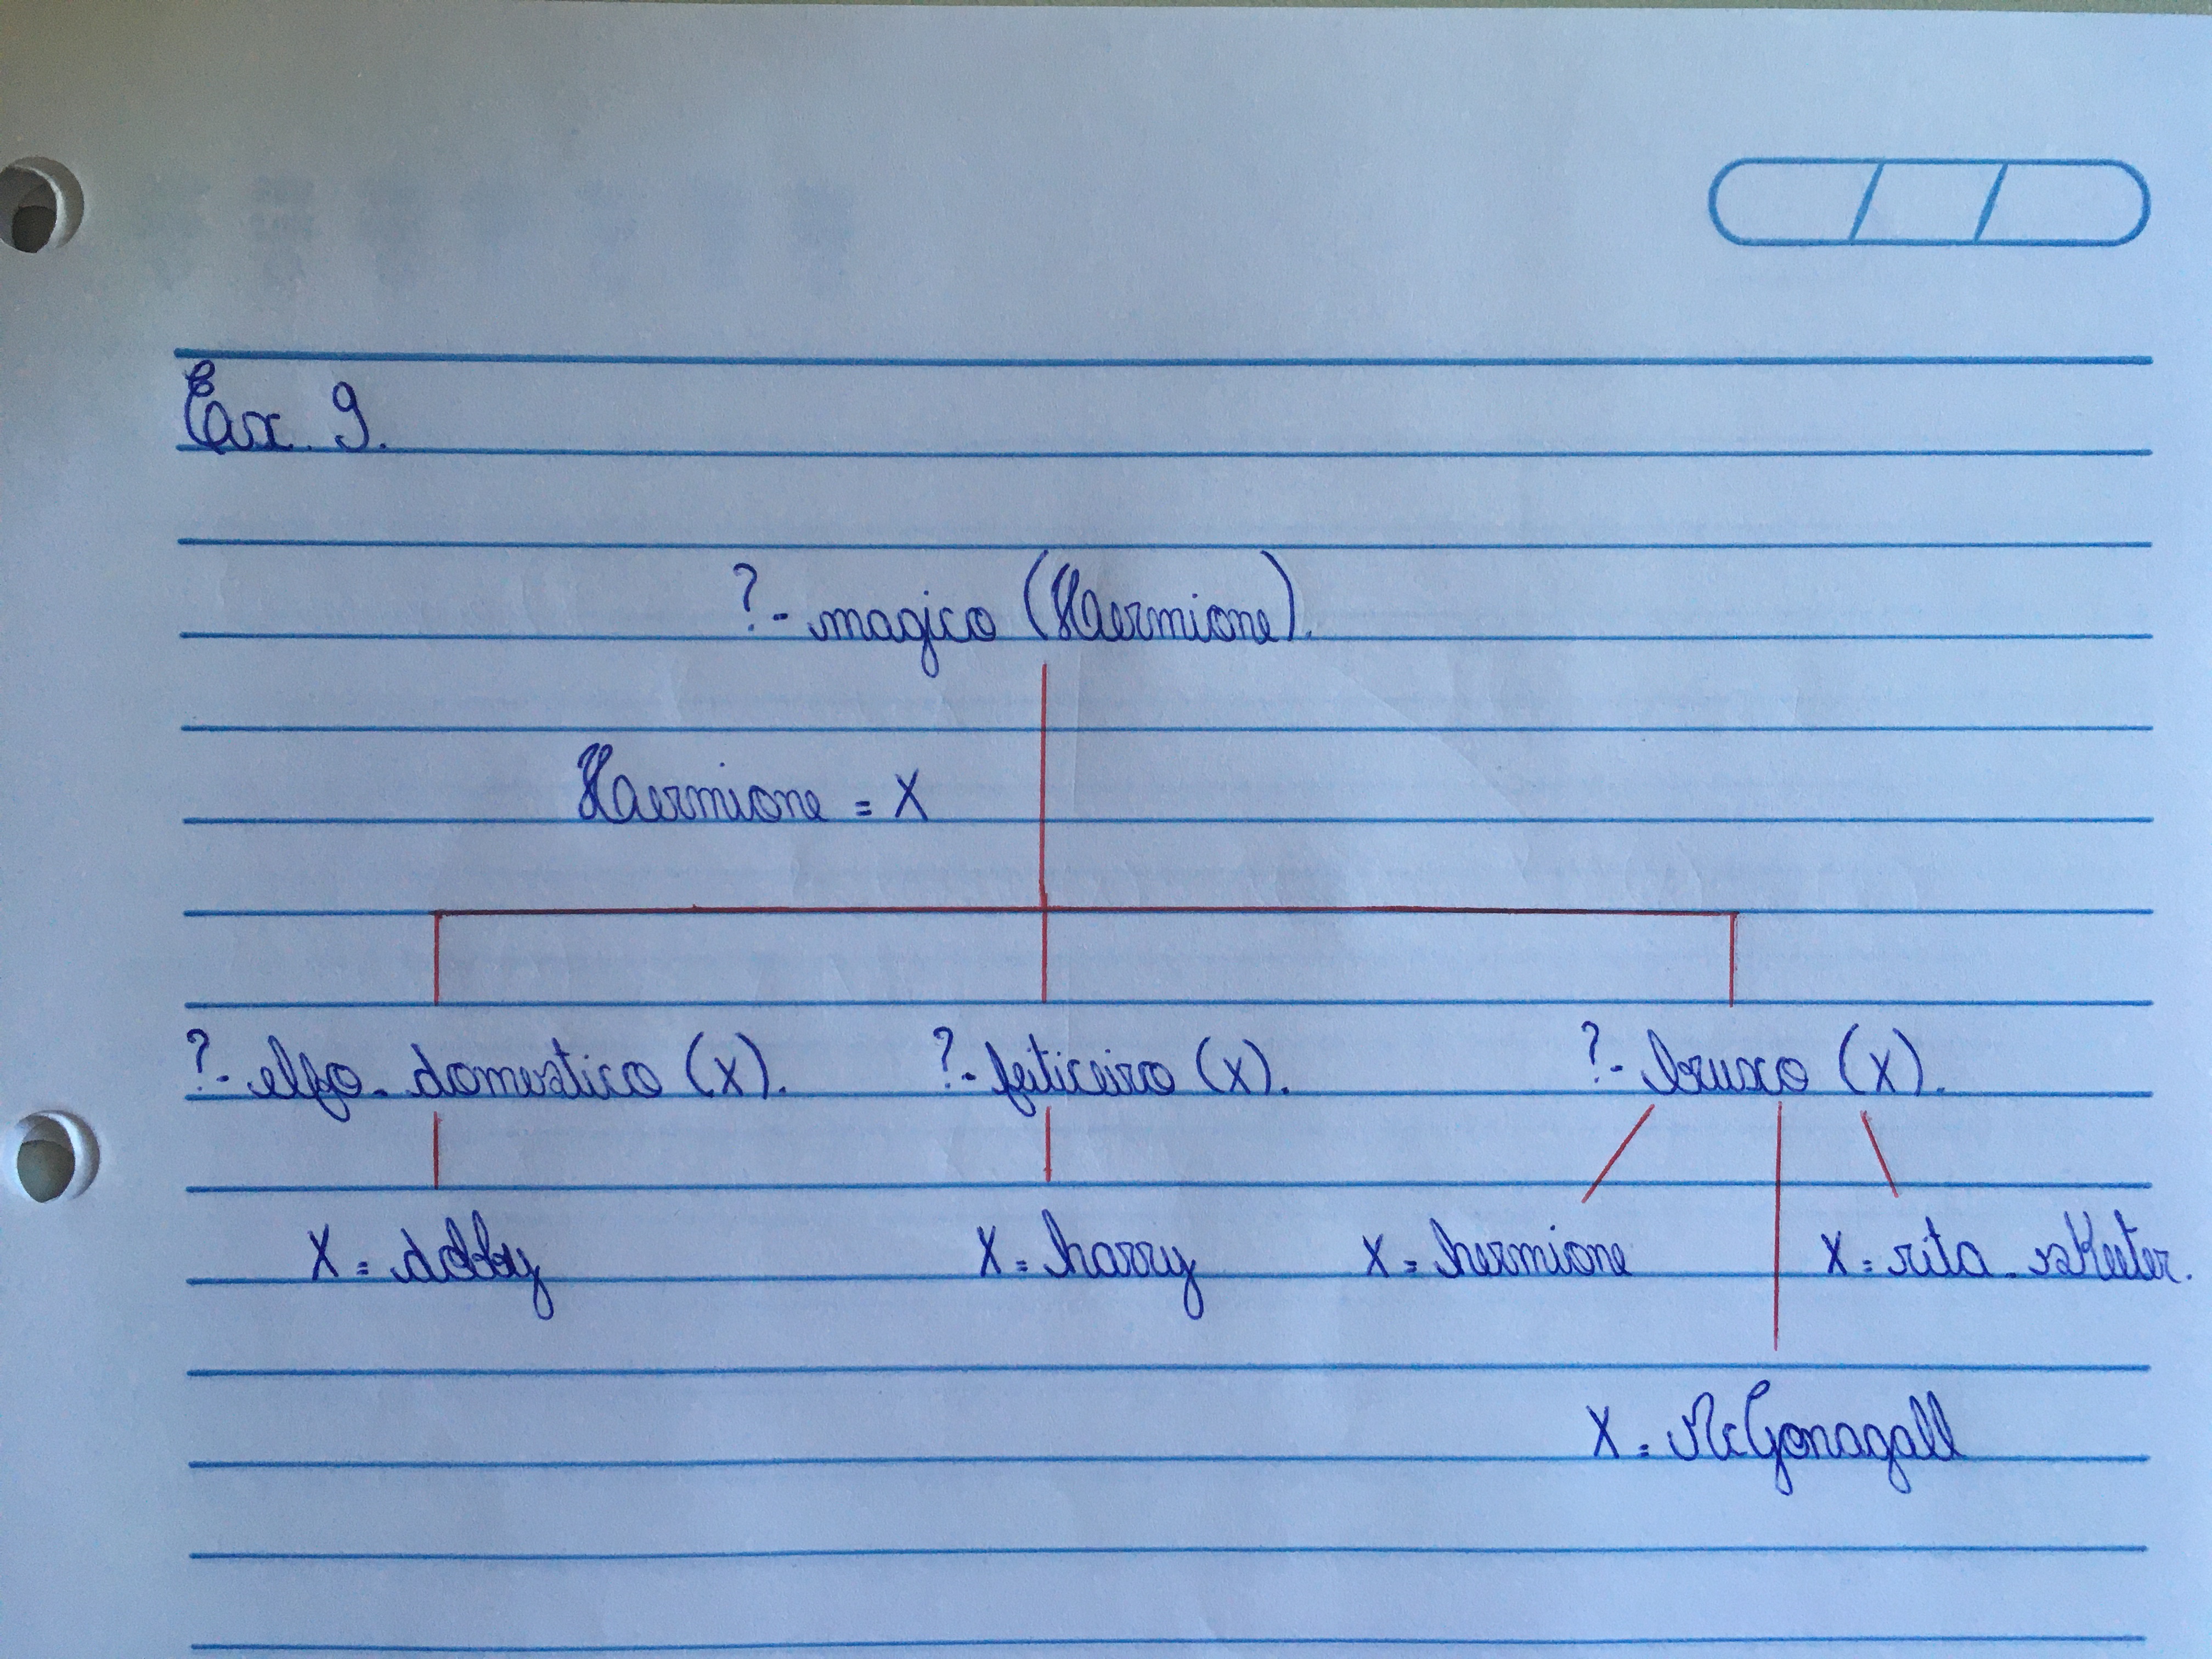 Ex. 9.
?- magico (Hermione).
Hermione = X
?- elfo-domestico (X). ?- feiticeiro (X). ?- bruxo (X).
X = dobby X = harry X = hermione X = rita-skeeter.
X = McGonagall